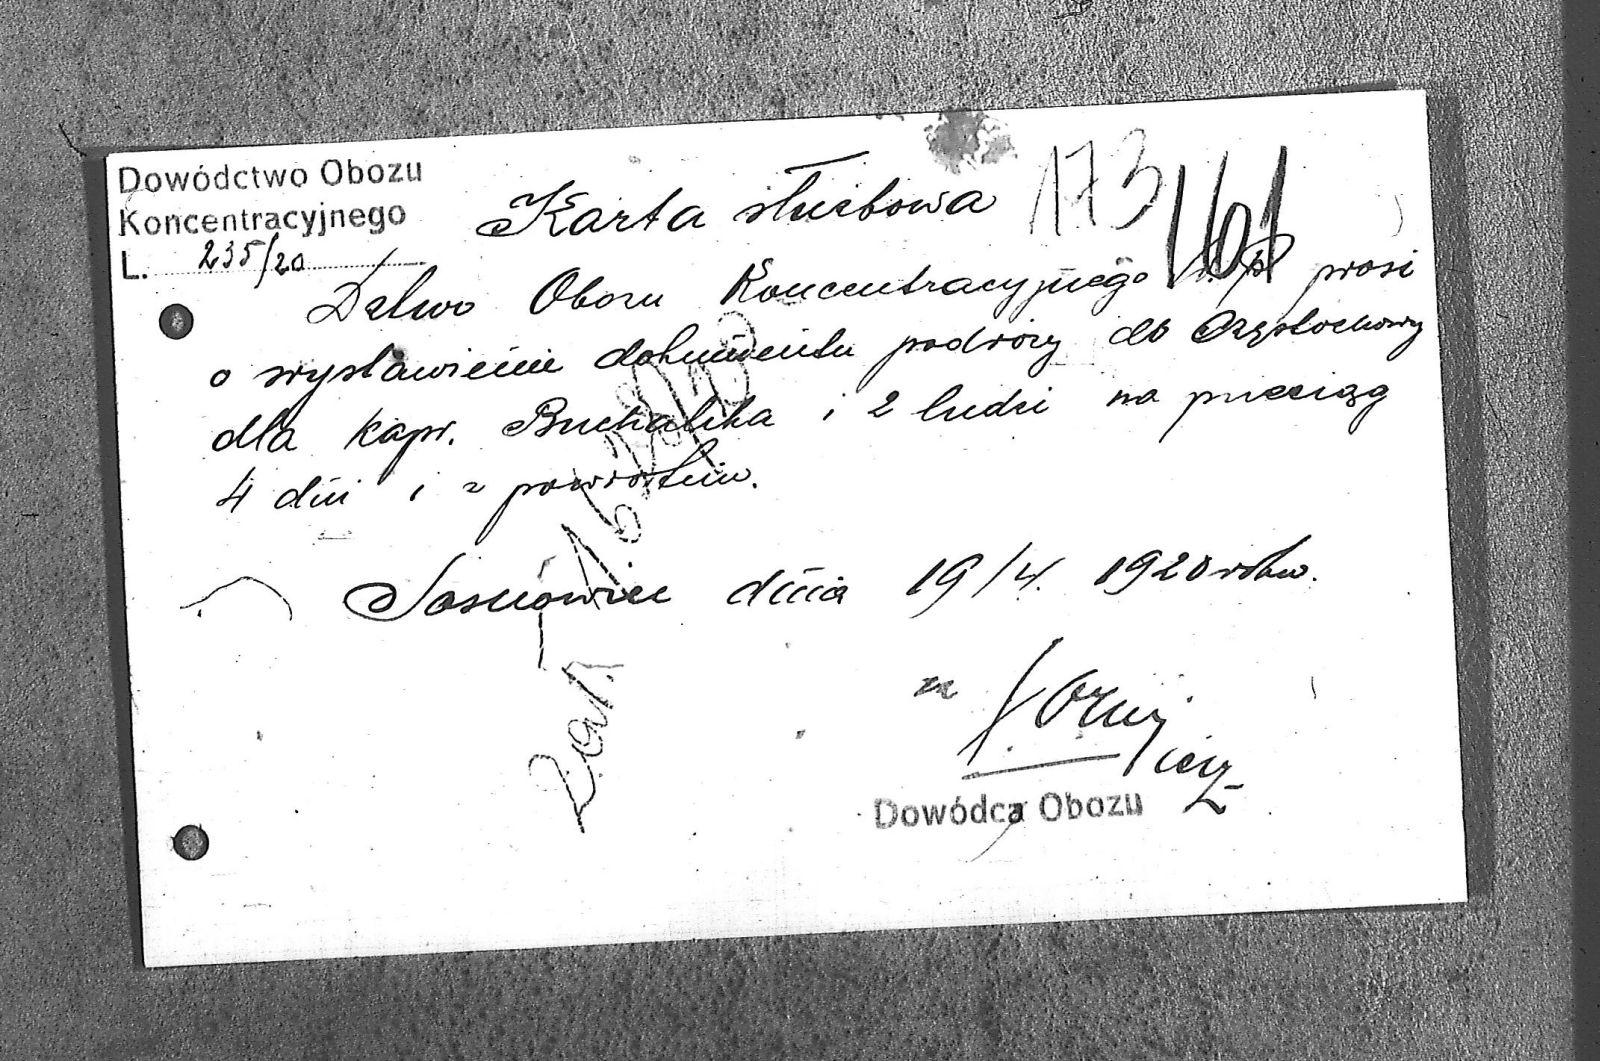 Dowództwo Obozu
Koncentracyjnego
L. 235/20
Karta służbowa
173
Dztwo Obozu Koncentracyjnego prosi
o wystawienie dokumentu podróży do Częstochowy
dla kapr. Buchalika i 2 ludzi na przeciąg
4 dni i z powrotem.
Sosnowiec dnia 19/4. 1920 roku.
Dowódca Obozu